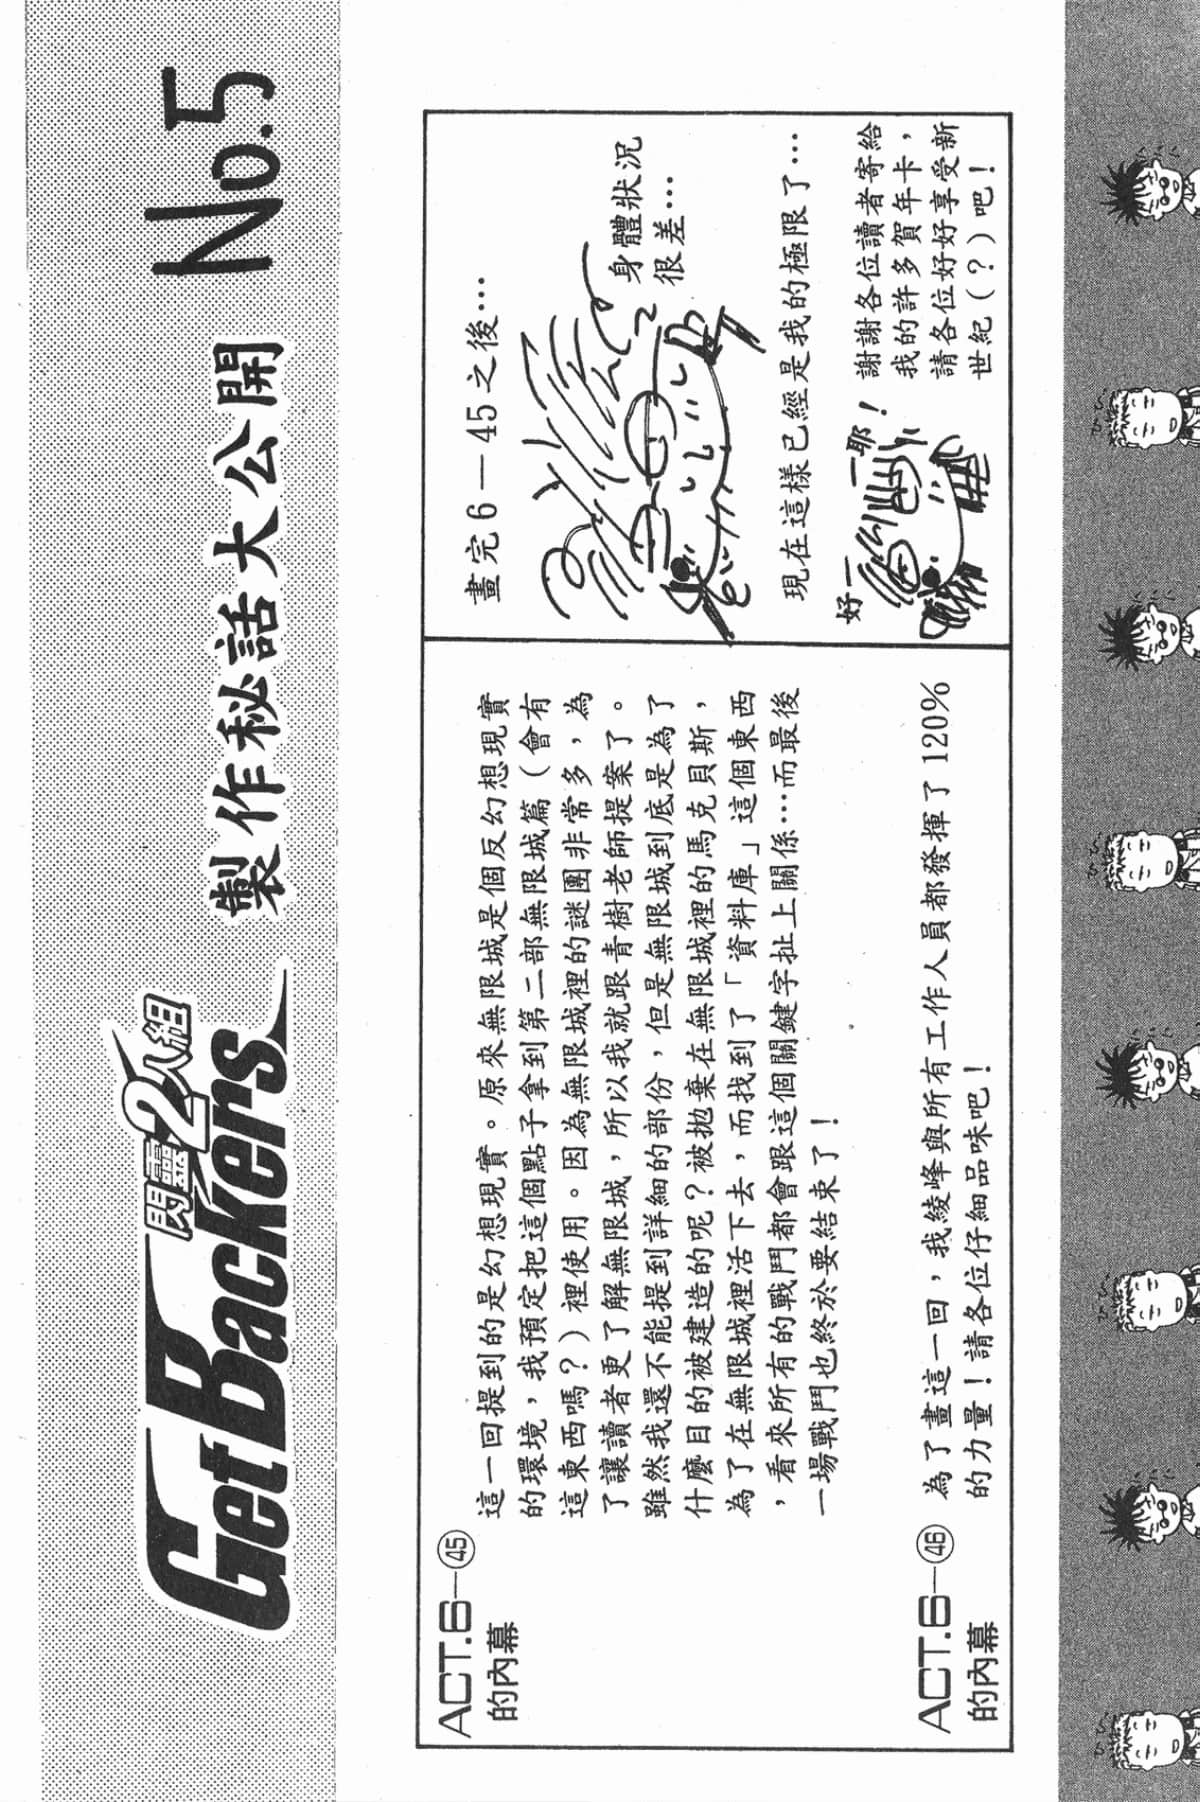 GetBackers
閃靈2人組
製作秘話大公開 No.5
ACT.6—㊺
的內幕
這一回提到的是幻想現實。原來無限城是個反幻想現實
的環境，我預定把這個點子拿到第二部無限城篇（會有
這東西嗎？）裡使用。因為無限城裡的謎團非常多，為
了讓讀者更了解無限城，所以我就跟青樹老師提案了。
雖然我還不能提到詳細的部份，但是無限城到底是為了
什麼目的被建造的呢？被拋棄在無限城裡的馬克貝斯，
為了在無限城裡活下去，而找到了「資料庫」這個東西
，看來所有的戰鬥都會跟這個關鍵字扯上關係…而最後
一場戰鬥也終於要結束了！
ACT.6—㊻
的內幕
為了畫這一回，我綾峰與所有工作人員都發揮了120%
的力量！請各位仔細品味吧！
畫完6－45之後…
身體狀況
很差…
現在這樣已經是我的極限了…
好—
—耶！
謝謝各位讀者寄給
我的許多賀年卡，
請各位好好享受新
世紀（？）吧！
ひひ
ひひ
ひひ
ひひ